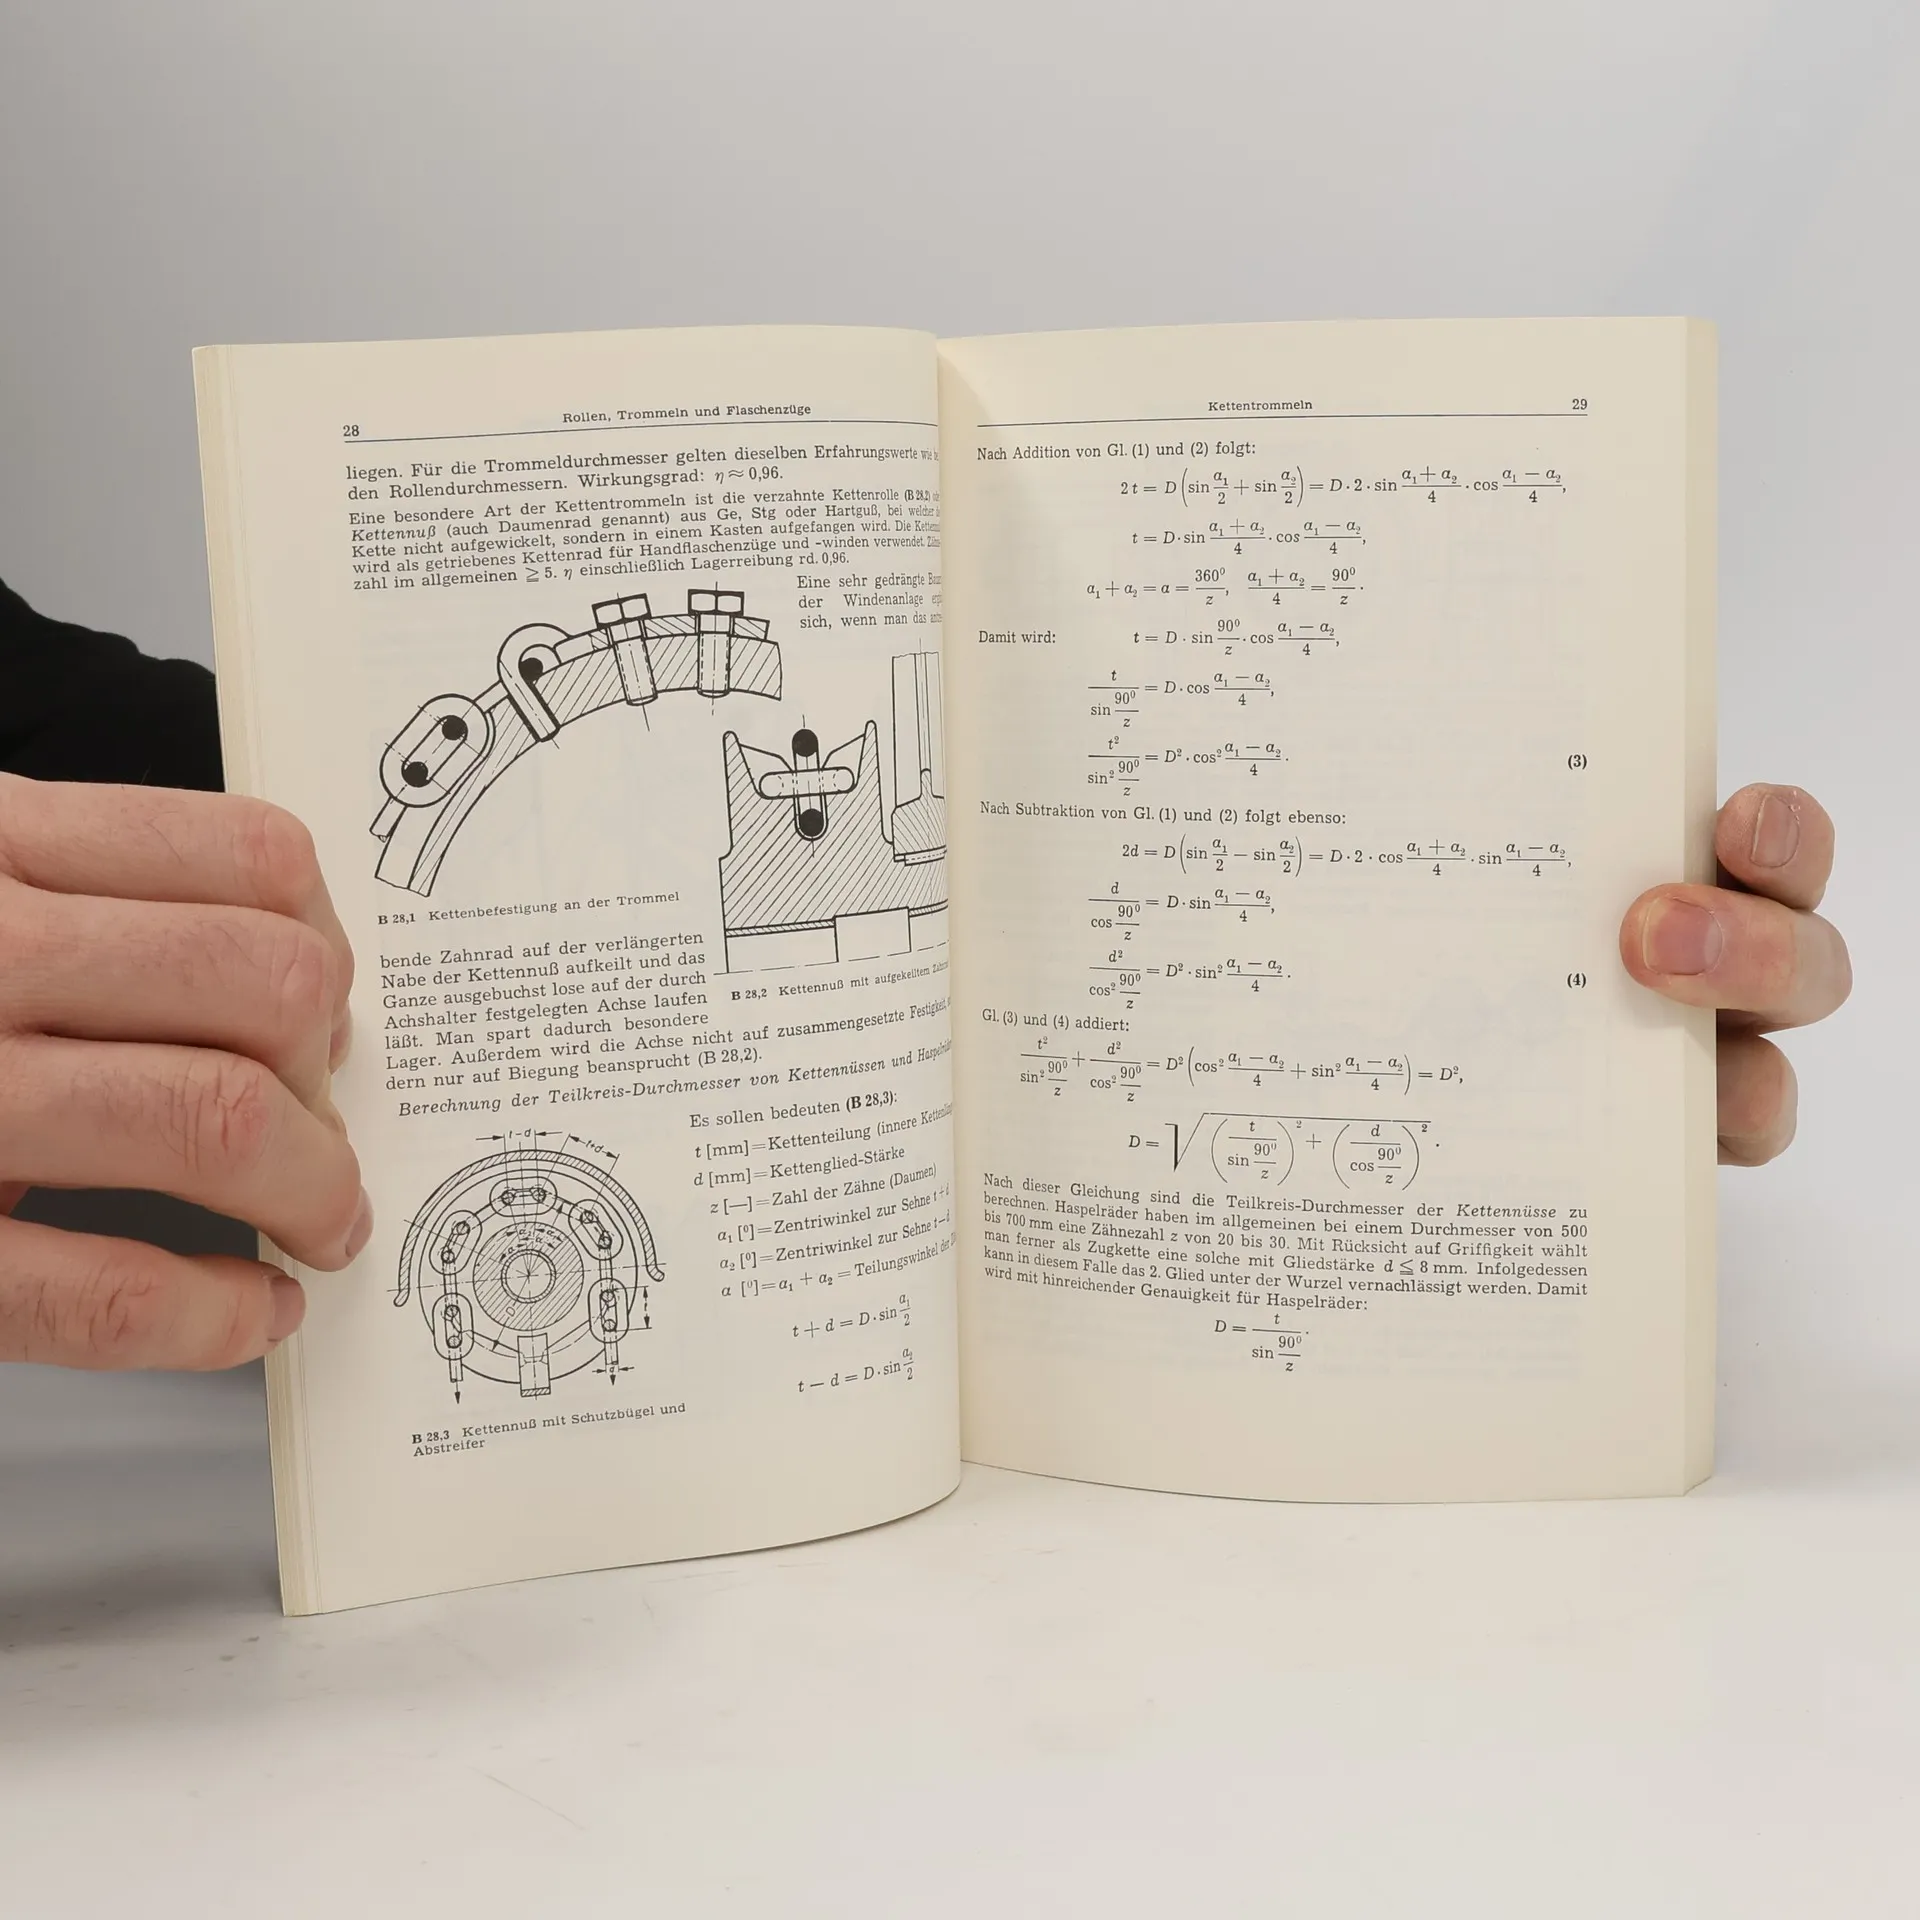 28
Rollen, Trommeln und Flaschenzüge
liegen. Für die Trommeldurchmesser gelten dieselben Erfahrungswerte wie
den Rollendurchmessern. Wirkungsgrad: η ≈ 0,96.
Eine besondere Art der Kettentrommeln ist die verzahnte Kettenrolle (B 28,2)
Kettennuß (auch Daumenrad genannt) aus Ge, Stg oder Hartguß, bei welcher
Kette nicht aufgewickelt, sondern in einem Kasten aufgefangen wird. Die
wird als getriebenes Kettenrad für Handflaschenzüge und -winden verwendet.
zahl im allgemeinen ≧ 5. η einschließlich Lagerreibung rd. 0,96.
Eine sehr gedrängte
der Windenanlage
sich, wenn man das
B 28,1 Kettenbefestigung an der Trommel
bende Zahnrad auf der verlängerten
Nabe der Kettennuß aufkeilt und das
Ganze ausgebuchst lose auf der durch
Achshalter festgelegten Achse laufen
läßt. Man spart dadurch besondere
B 28,2 Kettennuß mit aufgekeiltem
Lager. Außerdem wird die Achse nicht auf zusammengesetzte Festigkeit,
dern nur auf Biegung beansprucht (B 28,2).
Berechnung der Teilkreis-Durchmesser von Kettennüssen und
Es sollen bedeuten (B 28,3):
t [mm] = Kettenteilung (innere
d [mm] = Kettenglied-Stärke
z [—] = Zahl der Zähne (Daumen)
α₁ [⁰] = Zentriwinkel zur Sehne t + d
α₂ [⁰] = Zentriwinkel zur Sehne t — d
α [⁰] = α₁ + α₂ = Teilungswinkel der
t + d = D · sin α₁/2
t — d = D · sin α₂/2
t—d
t+d
α₂
α₁
α
D
t
d
B 28,3 Kettennuß mit Schutzbügel und
Abstreifer
Kettentrommeln
29
Nach Addition von Gl. (1) und (2) folgt:
2 t = D (sin α₁/2 + sin α₂/2) = D · 2 · sin (α₁ + α₂)/4 · cos (α₁ — α₂)/4,
t = D · sin (α₁ + α₂)/4 · cos (α₁ — α₂)/4,
α₁ + α₂ = α = 360⁰/z, (α₁ + α₂)/4 = 90⁰/z.
Damit wird: t = D · sin 90⁰/z · cos (α₁ — α₂)/4,
t/(sin 90⁰/z) = D · cos (α₁ — α₂)/4,
t²/(sin² 90⁰/z) = D² · cos² (α₁ — α₂)/4. (3)
Nach Subtraktion von Gl. (1) und (2) folgt ebenso:
2d = D (sin α₁/2 — sin α₂/2) = D · 2 · cos (α₁ + α₂)/4 · sin (α₁ — α₂)/4,
d/(cos 90⁰/z) = D · sin (α₁ — α₂)/4,
d²/(cos² 90⁰/z) = D² · sin² (α₁ — α₂)/4. (4)
Gl. (3) und (4) addiert:
t²/(sin² 90⁰/z) + d²/(cos² 90⁰/z) = D² (cos² (α₁ — α₂)/4 + sin² (α₁ — α₂)/4) = D²,
D = √((t/(sin 90⁰/z))² + (d/(cos 90⁰/z))²).
Nach dieser Gleichung sind die Teilkreis-Durchmesser der Kettennüsse zu
berechnen. Haspelräder haben im allgemeinen bei einem Durchmesser von 500
bis 700 mm eine Zähnezahl z von 20 bis 30. Mit Rücksicht auf Griffigkeit wählt
man ferner als Zugkette eine solche mit Gliedstärke d ≦ 8 mm. Infolgedessen
kann in diesem Falle das 2. Glied unter der Wurzel vernachlässigt werden. Damit
wird mit hinreichender Genauigkeit für Haspelräder:
D = t/(sin 90⁰/z).